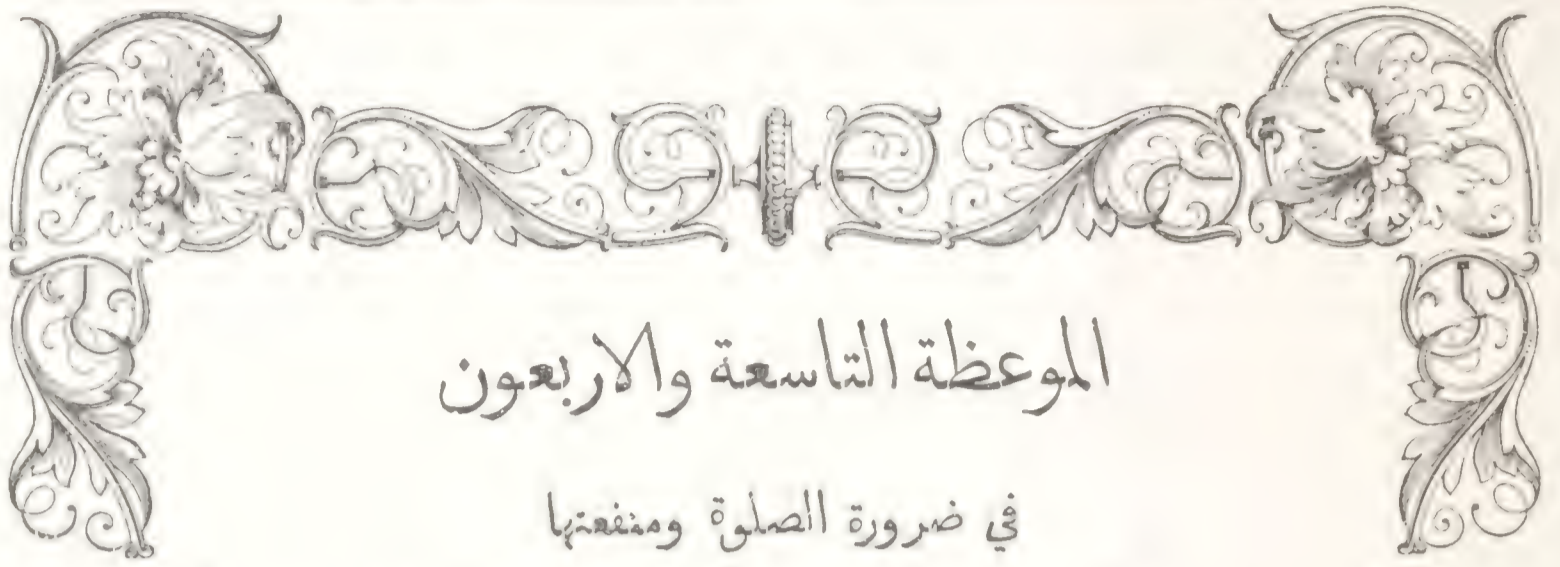 الموعظة التاسعة والاربعون
في ضرورة الصلوة ومنفعتها